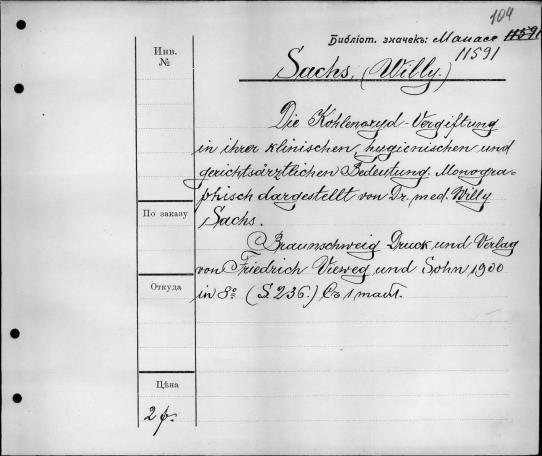 104
Библіот. значекъ: Манасе 11591
11591
Инв.
№
Sachs, (Willy.)
Die Kohlenoxyd-Vergiftung
in ihrer klinischen, hygienischen und
gerichtsärztlichen Bedeutung. Monogra-
phisch dargestellt von Dr. med. Willy
Sachs.
По заказу
Braunschweig Druck und Verlag
von Friedrich Vieweg und Sohn 1900
in 8º (S. 236.) Съ 1 табл.
Откуда
Цѣна
2 р.